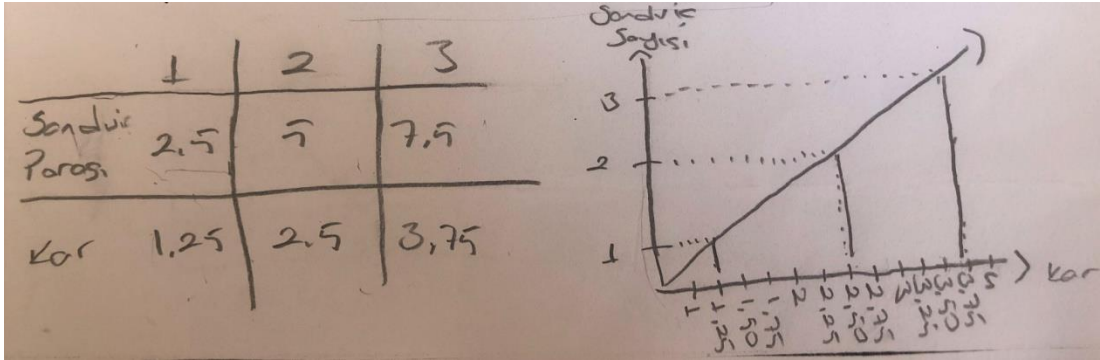 1 2 3
Sandviç
Parası 2.5 5 7,5
Kar 1.25 2.5 3,75
Sandviç
Sayısı
3
2
1
1 1,25 1,50 1,75 2 2,25 2,50 2,75 3 3,25 3,50 3,75 5
Kar